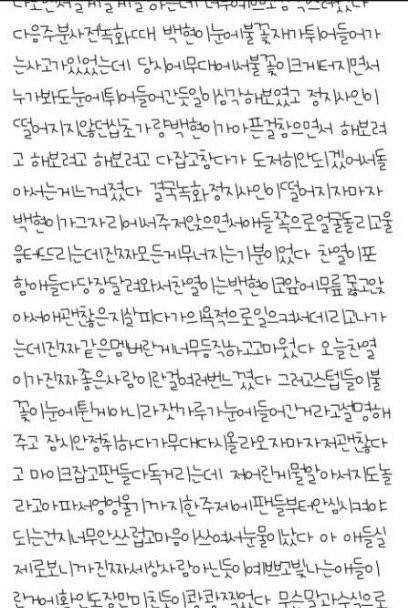 다음주분사전녹화때 백현이눈에불꽃자가튀어들어가
는사고가있었는데 당시에무대에서불꽃이크게터지면서
누가봐도눈에튀어들어간듯일이심각해보였고 정지사인이
떨어지지않던십초가량백현이가아픈걸참으면서 해보려
고 해보려고 해보려고 다잡고참다가 도저히안되겠어서돌
아서는게느껴졌다 결국녹화정지사인이떨어지자마자
백현이가그자리에서주저앉으면서애들쪽으로얼굴돌리고울
음터뜨리는데진짜모든게무너지는기분이었다 찬열이포
함애들다당장달려와서찬열이는백현이코앞에무릎꿇고앉
아서얘괜찮은지살피다가의욕적으로일으켜서데리고나가
는데진짜같은멤버란게너무듬직하고고마웠다 오늘찬열
이가진짜좋은사람이란걸여러번느꼈다 그러고스텝들이불
꽃이눈에튄게아니라잿가루가눈에들어간거라고설명해
주고 잠시안정취하다가무대다시올라오자마자저괜찮다
고 마이크잡고팬들다독거리는데 저어린게물알아서지도놀
라고아파서엉엉울기까지한주제에팬들부터안심시켜야
되는건지너무안쓰럽고마음이쓰여서눈물이났다 아 애들실
제로보니까진짜세상사람아닌듯이예쁘고빛나는애들이
란거에확인도장만미친듯이쾅쾅찍었다